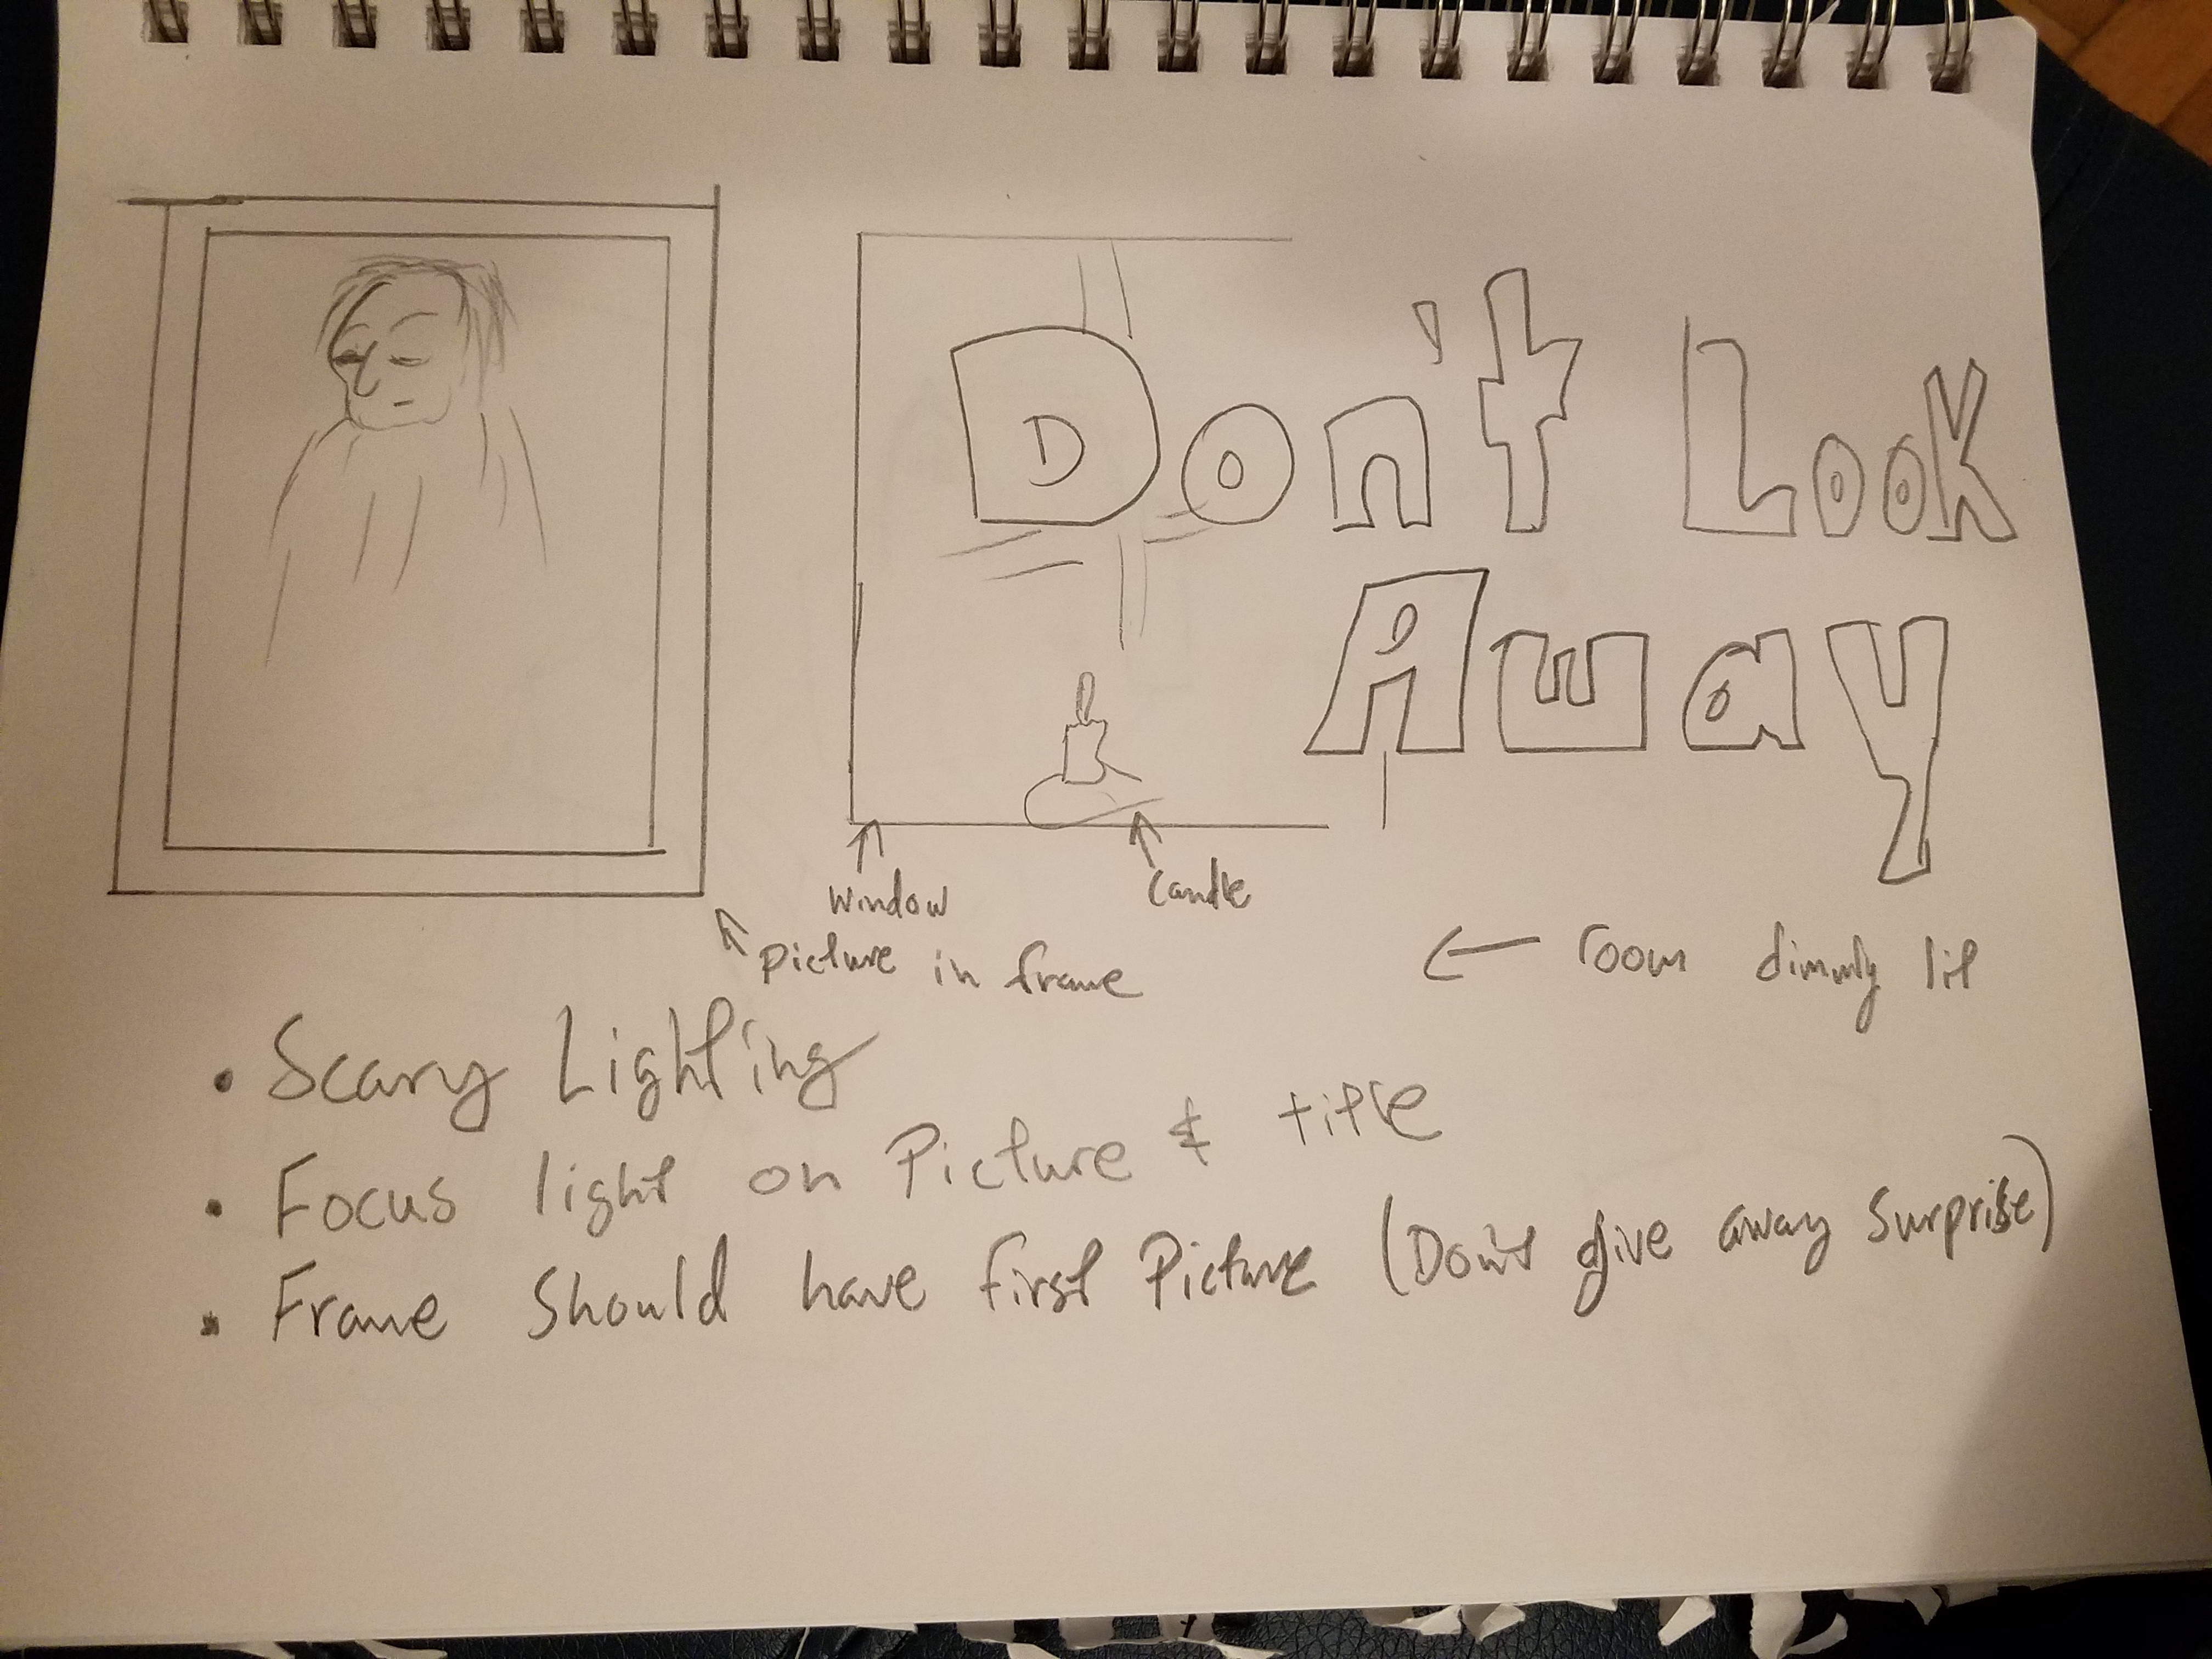 Don't Look
Away
Window
Candle
picture in frame
room dimmly lit
• Scary Lighting
• Focus light on Picture & title
• Frame Should have first Picture (Don't give away Surprise)